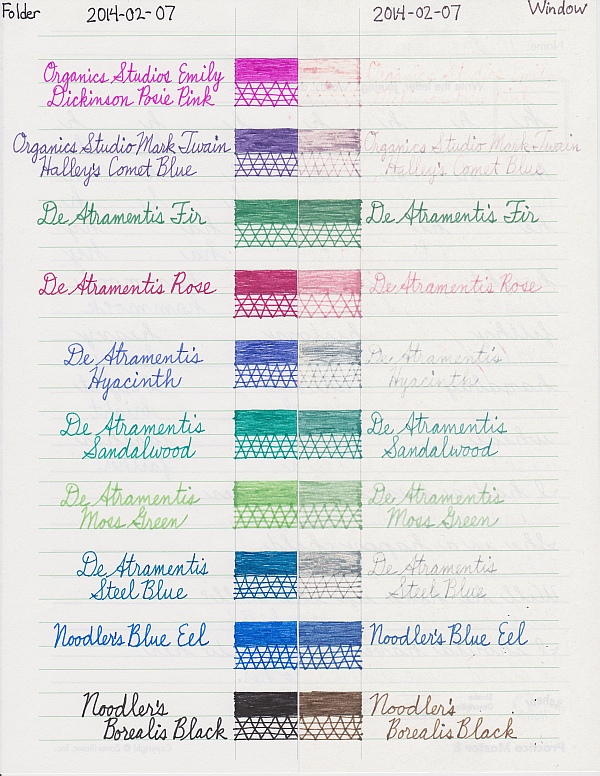 Folder 2014-02-07 2014-02-07 Window
Organics Studios Emily Organics Studios Emily
Dickinson Posie Pink
Organics Studio Mark Twain Organics Studio Mark Twain
Halley's Comet Blue Halley's Comet Blue
De Atramentis Fir De Atramentis Fir
De Atramentis Rose De Atramentis Rose
De Atramentis De Atramentis
Hyacinth Hyacinth
De Atramentis De Atramentis
Sandalwood Sandalwood
De Atramentis De Atramentis
Moss Green Moss Green
De Atramentis De Atramentis
Steel Blue Steel Blue
Noodler's Blue Eel Noodler's Blue Eel
Noodler's Noodler's
Borealis Black Borealis Black